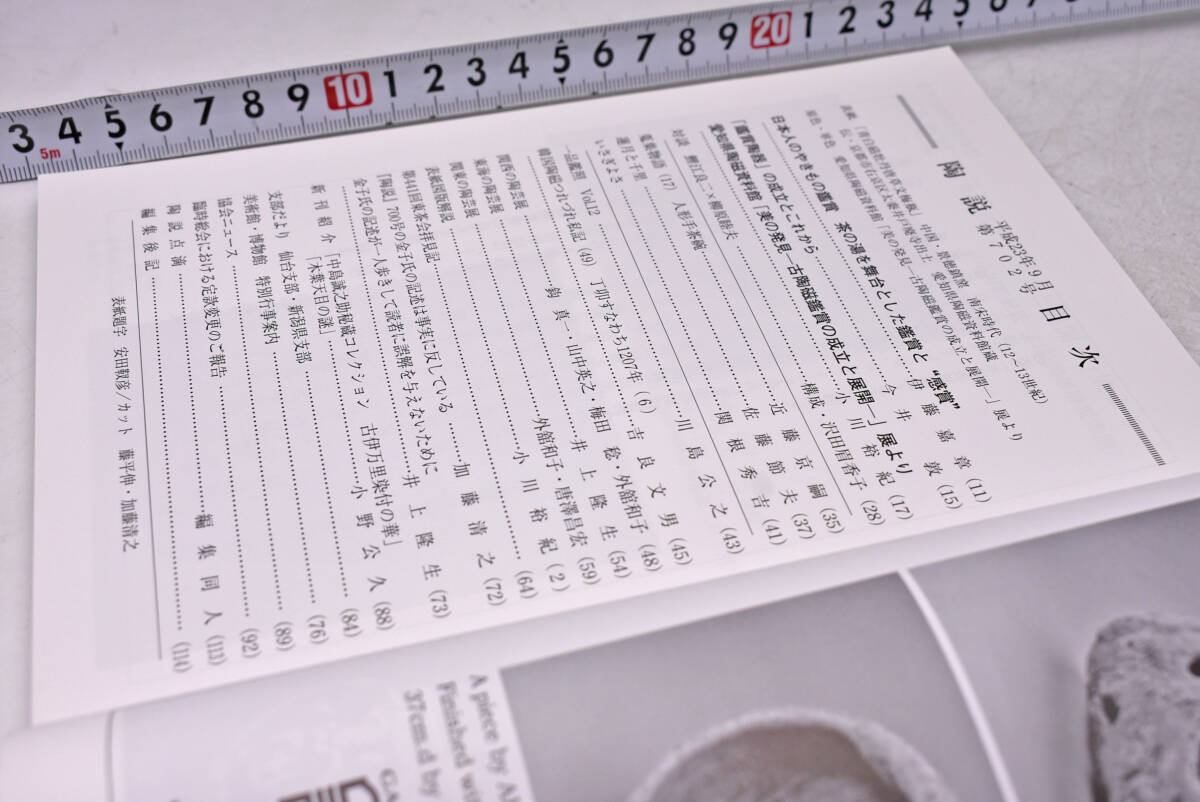 3 4 5 6 7 8 9 10 1 2 3 4 5 6 7 8 9 20 1 2 3 4 5 6 7 8
5m
陶説 平成23年・9月 第702号 目次
中国・景徳鎮窯 南宋時代(12〜13世紀)
愛知県陶磁資料館「美の発見―古陶磁鑑賞の成立と展開―」展より
日本人のやきもの鑑賞 茶の湯を舞台とした鑑賞と“感賞” 伊藤嘉章(11)
今井敦(15)
「鑑賞陶器」の成立とこれから 小川裕紀(17)
愛知県陶磁資料館「美の発見―古陶磁鑑賞の成立と展開―」展より 構成・沢田眉香子(28)
対談 鯉江良二×柳原睦夫 近藤京嗣(35)
東東物語(17)人形手茶碗 佐藤節夫(37)
蓮月と千里 関根秀吉(41)
いさぎよさ 川島公之(43)
一品鑑照 Vol.12 吉良文男(45)
韓国陶磁つれづれ私記(49)丁卯すなわち1207年(6)
関西の陶芸展 鈎真一・山中英之・梅田稔・外舘和子(48)
東海の陶芸展 井上隆生(54)
関東の陶芸展 外舘和子・唐澤昌宏(59)
表紙図版解説 小川裕紀(2)
第441回東茶会拝見記 (64)
『陶説』700号の金子氏の記述は事実に反している 加藤清之(72)
金子氏の記述が一人歩きして読者に誤解を与えないために 井上隆生(73)
新刊紹介「中島誠之助秘蔵コレクション 古伊万里染付の華」 小野公久(88)
「木葉天目の謎」 (84)
支部だより 仙台支部・新潟県支部 (76)
美術館・博物館 特別行事案内 (89)
協会ニュース (92)
臨時総会における定款変更のご報告
陶説点滴 編集同人(113)
編集後記 (114)
表紙題字 安田靫彦/カット 藤平伸・加藤清之
A piece by
Finished
37cm.d by